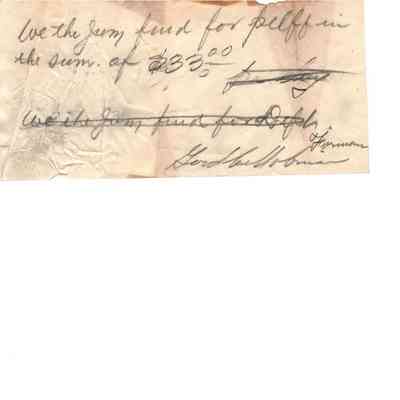 We the Jury find for plff in
the sum. of $33.00
We the Jury find for Deft.
Forman